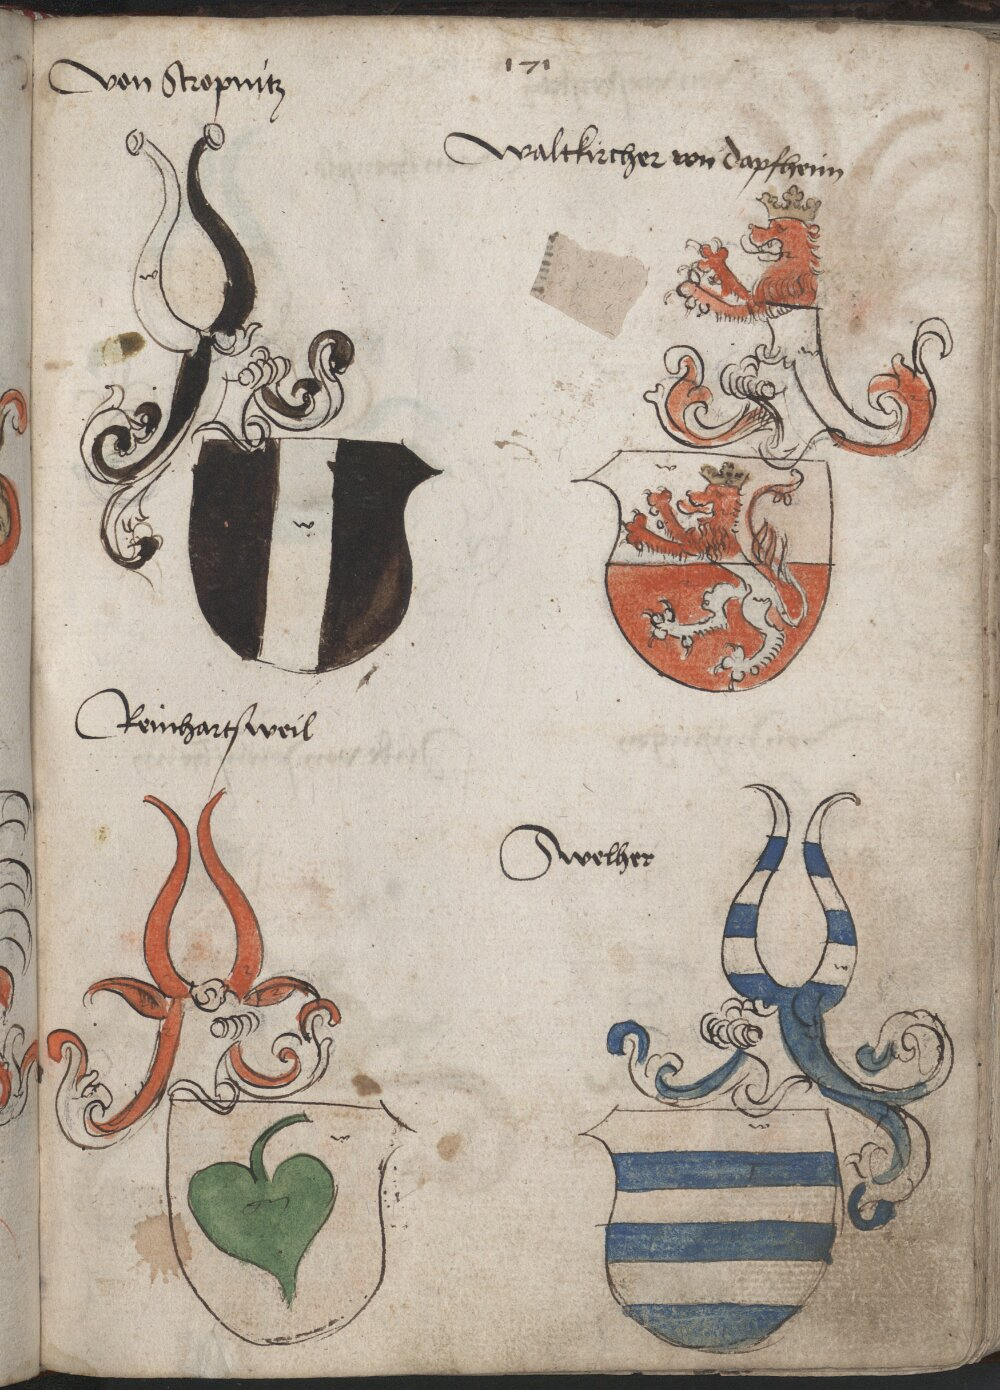 171
von Stropnitz
Waltkircher von Dapfheim
Reinhartsweil
Swelher
w
w
w
w
w
w